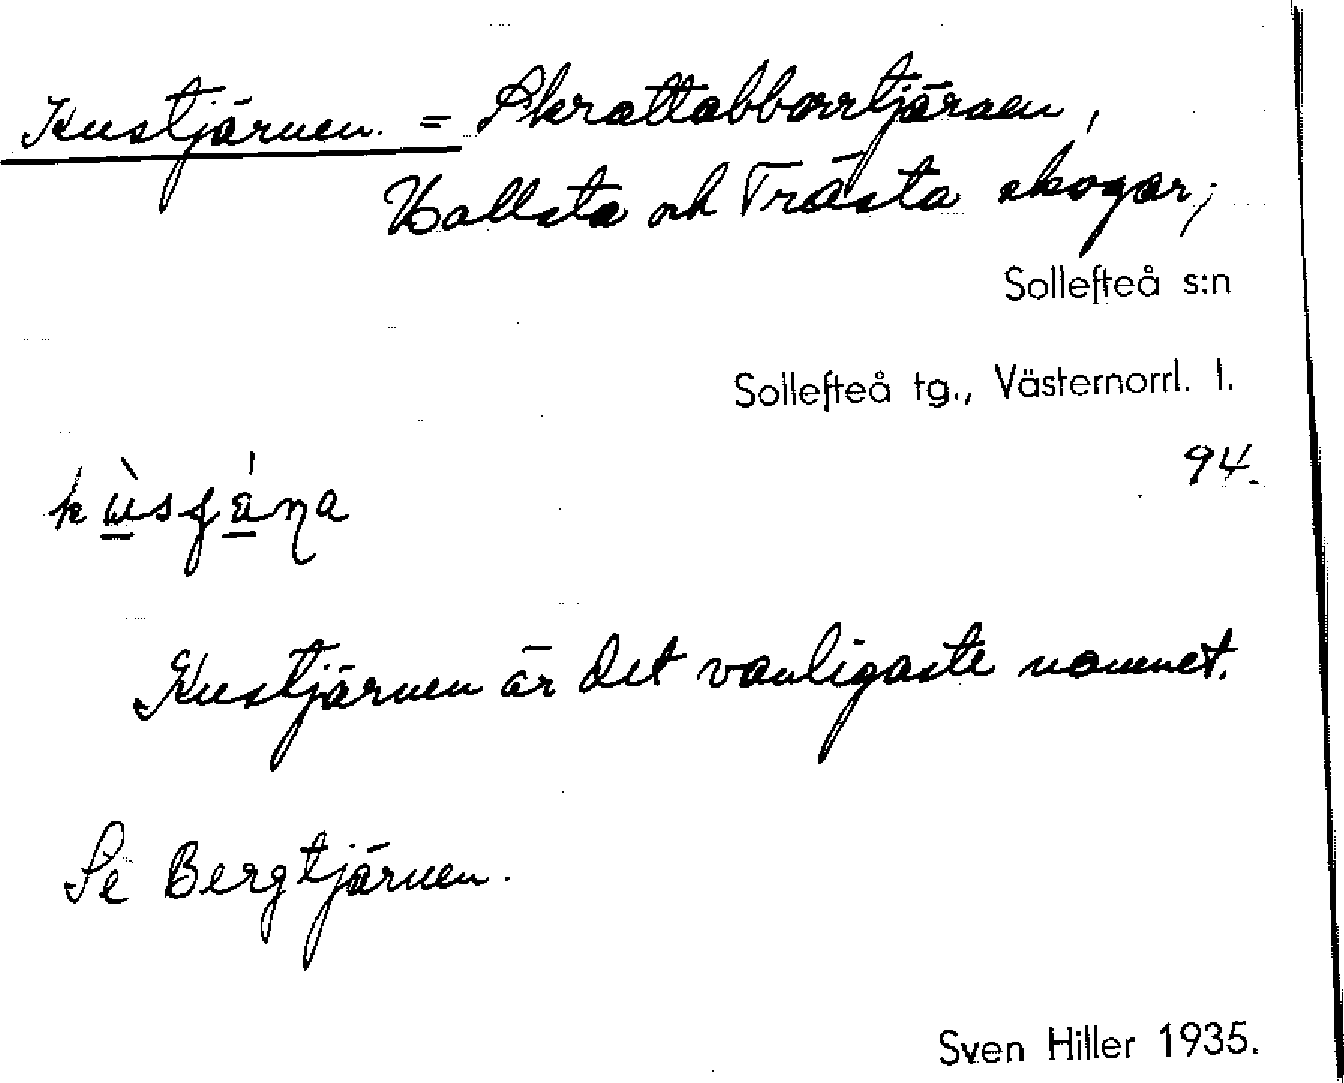 Kustjärnen. = Skrattabborrtjärnen,
Vallsta och Trästa skogar;
Sollefteå s:n
Sollefteå tg., Västernorrl. l.
94.
Kustjärnen är det vanligaste namnet.
Se Bergtjärnen.
Sven Hiller 1935.